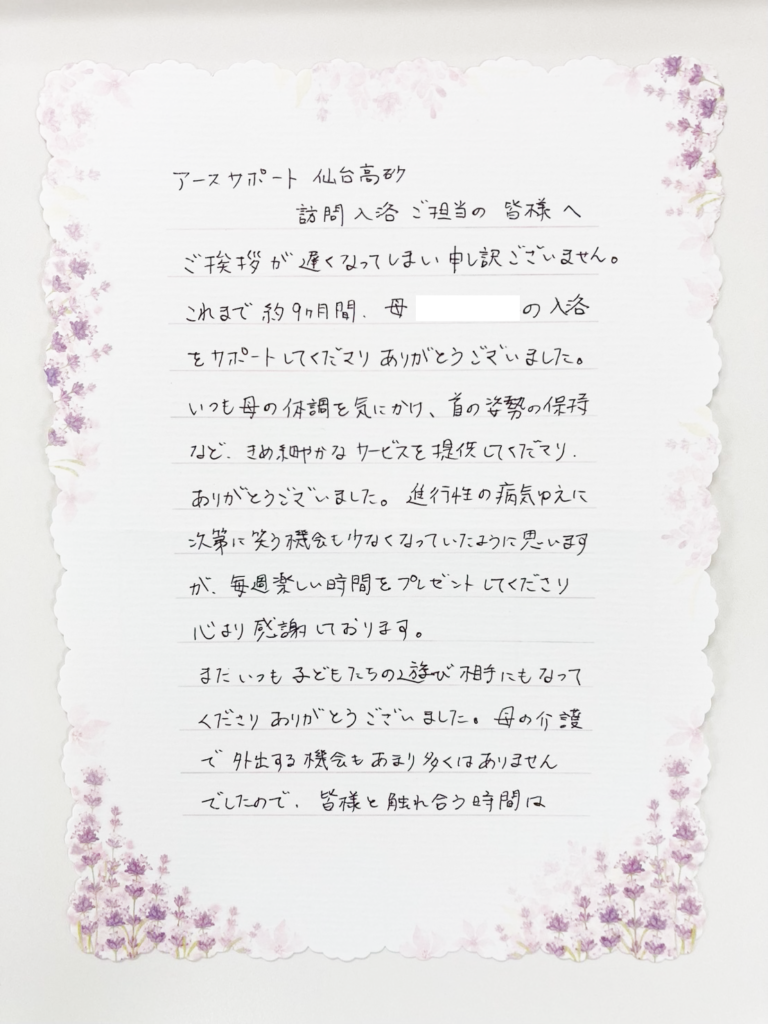 アースサポート 仙台高砂
訪問入浴ご担当の 皆様へ
ご挨拶が遅くなってしまい申し訳ございません。
これまで約9ヶ月間、母 の入浴
をサポートしてくださりありがとうございました。
いつも母の体調を気にかけ、首の姿勢の保持
など、きめ細やかなサービスを提供してくださり、
ありがとうございました。進行性の病気ゆえに
次第に笑う機会も少なくなっていたように思います
が、毎週楽しい時間をプレゼントしてくださり
心より感謝しております。
またいつも子どもたちの遊び相手にもなって
くださりありがとうございました。母の介護
で外出する機会もあまり多くはありません
でしたので、皆様と触れ合う時間は